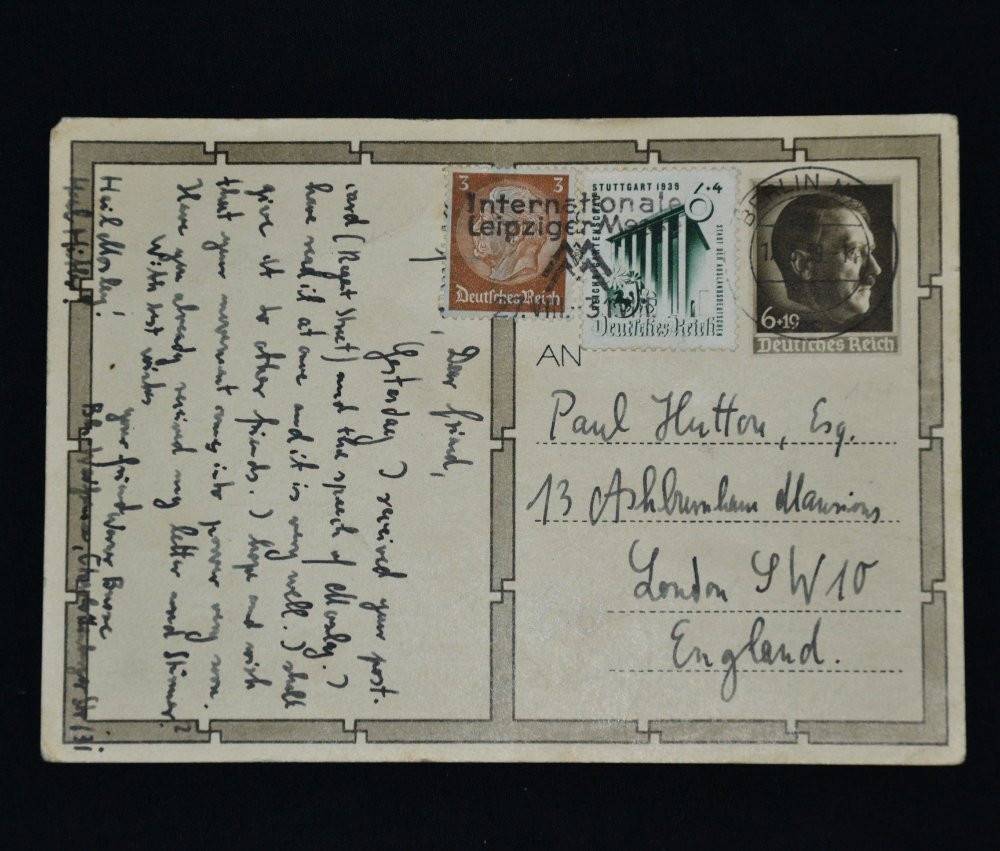 3 3
Deutsches Reich
Internationale
Leipziger Messe
STUTTGART 1939
REICHSGARTENSCHAU
STADT DER AUSLANDSDEUTSCHEN
6+4
Deutsches Reich
BERLIN
6+19
Deutsches Reich
AN
Paul Hutton, Esq.
13 Ashburnham Mansions
London SW10
England.
Dear friend,
Yesterday I received your post-
card (Regent Street) and the speech of Mosley. I
have read it at once and it is very well. I shall
give it to other friends. I hope and wish
that your movement comes into power very soon.
Have you already received my letter and Stürmer?
With best wishes
your friend Werner
Heil Mosley!
Heil Hitler!